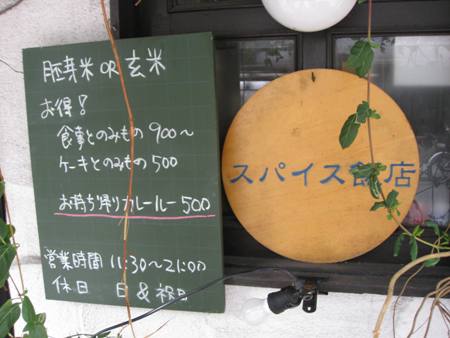 胚芽米 OR 玄米
お得!
食事とのみもの 900~
ケーキとのみもの 500
お持ち帰りカレールー 500
営業時間 11:30~21:00
休日 日&祝日
スパイス飯店